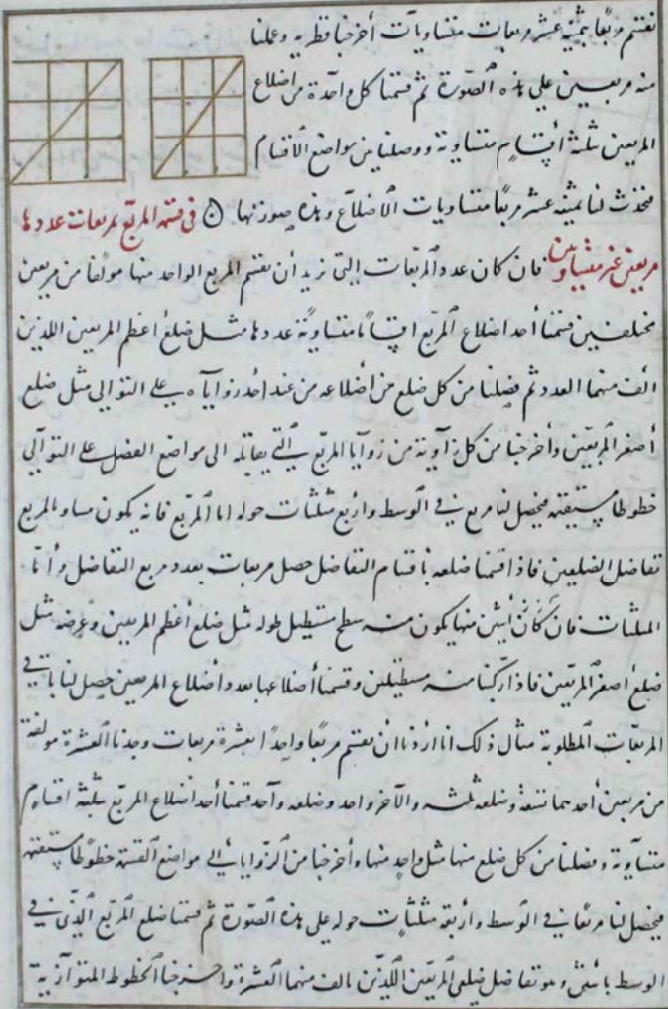 نقسم مربعا بثمنية عشر مربعات متساويات أخرجنا قطريه وعملنا
منه مربعين على هذه الصورة ثم قسمنا كل واحدة من اضلاع
المربعين بثلثة أقسام متساوية ووصلنا بين مواضع الاقسام
فحدث لنا ثمنية عشر مربعا متساويات الاضلاع وهذه صورتها في قسمة المربع لمربعات عددها
مربعين غير متساويين فان كان عدد المربعات التي نريد أن نقسم المربع الواحد منها مولفا من مربعين
مختلفين قسمنا أحد اضلاع المربع اقساما متساوية عددها مثل ضلع اعظم المربعين اللذين
الف منهما العدد ثم فصلنا من كل ضلع من أضلاعه من عند أحد زواياه على التوالي مثل ضلع
أصغر المربعين وأخرجنا من كل زاوية من زوايا المربع التي يقابله الى مواضع الفصل على التوالي
خطوطا مستقيمة فيحصل لنا مربع في الوسط واربع مثلثات حوله اما المربع فانه يكون مساو لمربع
تفاضل الضلعين فاذا قسمنا ضلعه باقسام التفاضل حصل مربعات بعدد مربع التفاضل وأما
المثلثات فان كل اثنين منها يكون منه سطح مستطيل طوله مثل ضلع أعظم المربعين وعرضه مثل
ضلع أصغر المربعين فاذا ركبنا منه مستطيلين وقسمنا أضلاعها بعدد أضلاع المربعين حصل لنا باقي
المربعات المطلوبة مثال ذلك انا أردنا ان نقسم مربعا واحدا بعشرة مربعات وجدنا العشرة مولفة
من مربعين أحدهما تسعة وضلعه ثلثة والآخر واحد وضلعه واحد قسمنا أحد اضلاع المربع بثلثة اقسام
متساوية وفصلنا من كل ضلع منها مثل واحد منها وأخرجنا من الزوايا الى مواضع القسمة خطوطا مستقيمة
فيحصل لنا مربعا في الوسط وأربعة مثلثات حوله على هذه الصورة ثم قسمنا ضلع المربع الذي في
الوسط باثنين وهو تفاضل ضلعي المربعين اللذين تالف منهما العشرة واخرجنا الخطوط المتوازية